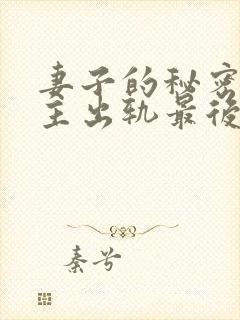 妻子的秘密
主出轨最後
秦兮